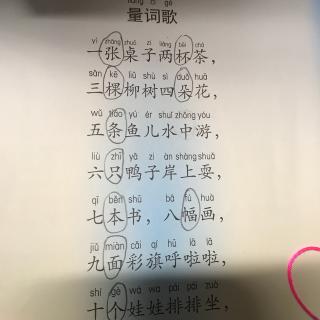 liàng cí gē
量词歌
yì zhāng zhuō zi liǎng bēi chá
一张桌子两杯茶，
sān kē liǔ shù sì duǒ huā
三棵柳树四朵花，
wǔ tiáo yú ér shuǐ zhōng yóu
五条鱼儿水中游，
liù zhī yā zi àn shàng shuǎ
六只鸭子岸上耍，
qī běn shū bā fú huà
七本书，八幅画，
jiǔ miàn cǎi qí hū lā lā
九面彩旗呼啦啦，
shí gè wá wa pái pái zuò
十个娃娃排排坐，